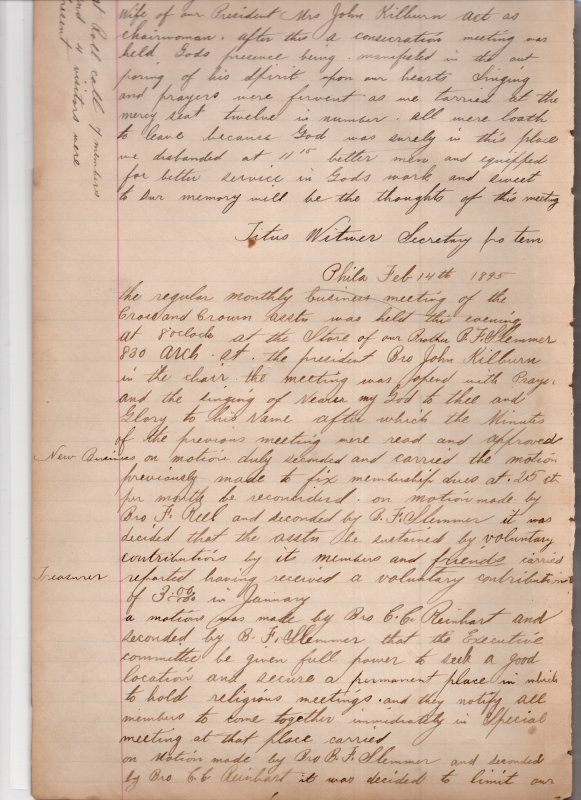 at Roll call 9 members
and 4 visitors were
present
Wife of our President Mrs John Kilburn act as
chairwoman. after this a consecration meeting was
held Gods presence being manifested in the out
poring of his Spirit upon our hearts Singing
and prayers were fervent as we tarried at the
mercy seat twelve in number. all were loath
to leave because God was surely in this place
we disbanded at 11 15 better men and equipped
for better service in Gods work and sweet
to our memory will be the thoughts of this meeting
Titus Witwer Secretary pro tem
Phila Feb 14th 1895
the regular monthly business meeting of the
Cross and Crown asstn was held this evening
at 8 oclock at the Store of our Brother B.F. Slemmer
830 Arch. St. the president Bro John Kilburn
in the chair. the meeting was opend with Prayer
and the singing of Nearer my God to thee and
Glory to his Name after which the Minutes
of the previous meeting were read and approved
New Business on motion duly seconded and carried the motion
previously made to fix membership dues at .25 cts
per month be reconsiderd. on motion made by
Bro F. Reel and seconded by B.F. Slemmer it was
decided that the asstn be sustained by voluntary
contributions by its members and friends carried
Treasurer reported having received a voluntary contribution
of 3.00 in January
a motion was made by Bro C.C. Reinhart and
seconded by B.F. Slemmer that the Executive
committee be given full power to seek a good
location and secure a permanent place in which
to hold religious meetings. and they notify all
members to come together immediately in Special
meeting at that place carried
on Motion made by Bro B.F. Slemmer and seconded
by Bro C.C. Reinhart it was decided to limit our